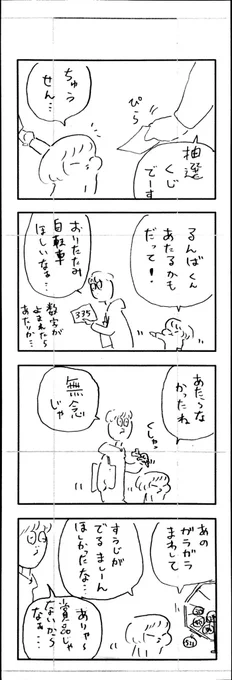 抽選
くじ
でーす
ぴら
ちゅう
せん…
るんばくん
あたるかも
だって!
おりたたみ
自転車
ほしいなぁ…
335
数字が
よまれたら
あたりか…
あたらな
かったね
くしゃっ
無念
じゃ
あの
ガラガラ
まわして
すうじが
でるましーん
ほしかったな…
ありゃ〜
賞品じゃ
ないから
なぁ…
511